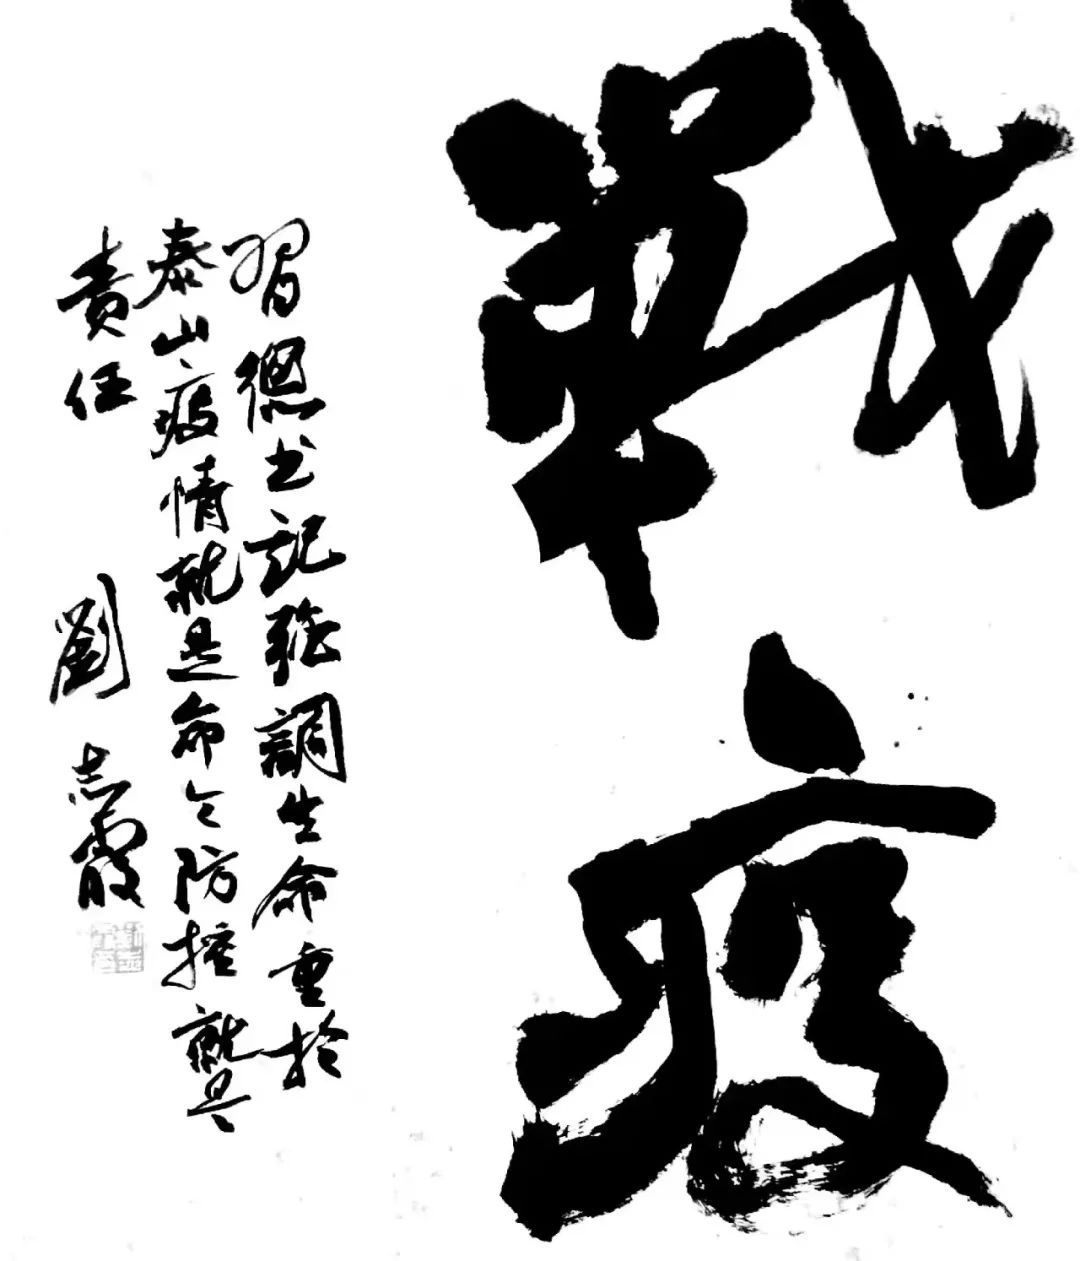 戰疫
習總书記强調生命重於
泰山疫情就是命令防控就是
責任
劉志霞